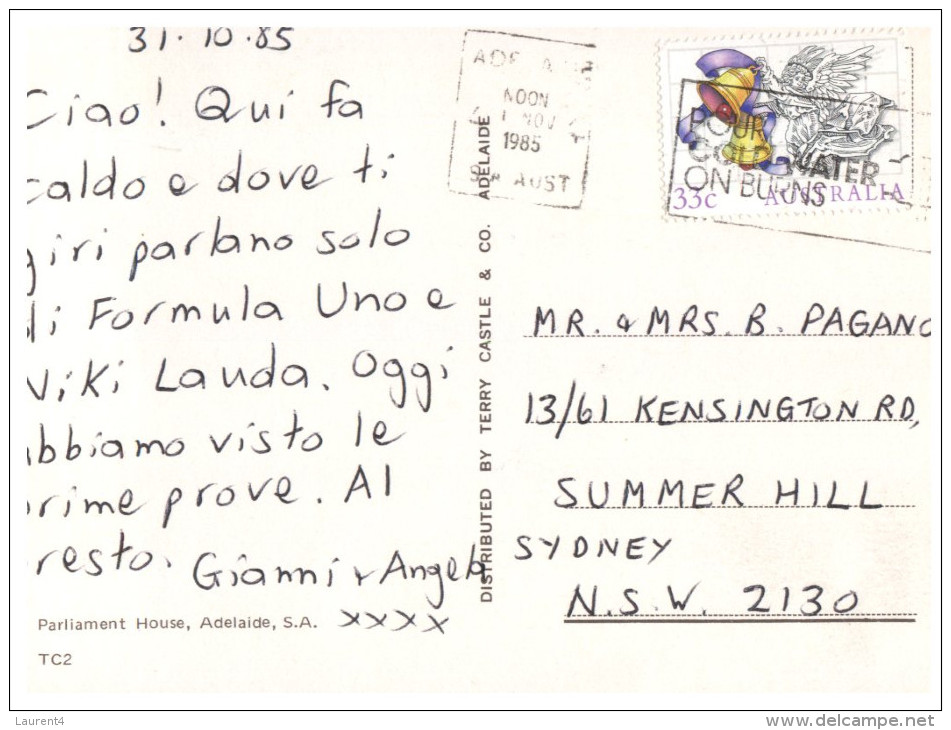 31.10.85
Ciao! Qui fa
caldo e dove ti
giri parlano solo
di Formula Uno e
Niki Lauda. Oggi
abbiamo visto le
prime prove. Al
resto. Gianni & Angela
xxxx
Parliament House, Adelaide, S.A.
TC2
DISTRIBUTED BY TERRY CASTLE & CO. ADELAIDE
NOON
1 NOV
1985
AUST
POUR
COLD WATER
ON BURNS
33c AUSTRALIA
MR. & MRS. B. PAGANO
13/61 KENSINGTON RD,
SUMMER HILL
SYDNEY
N.S.W. 2130
Laurent4
www.delcampe.net